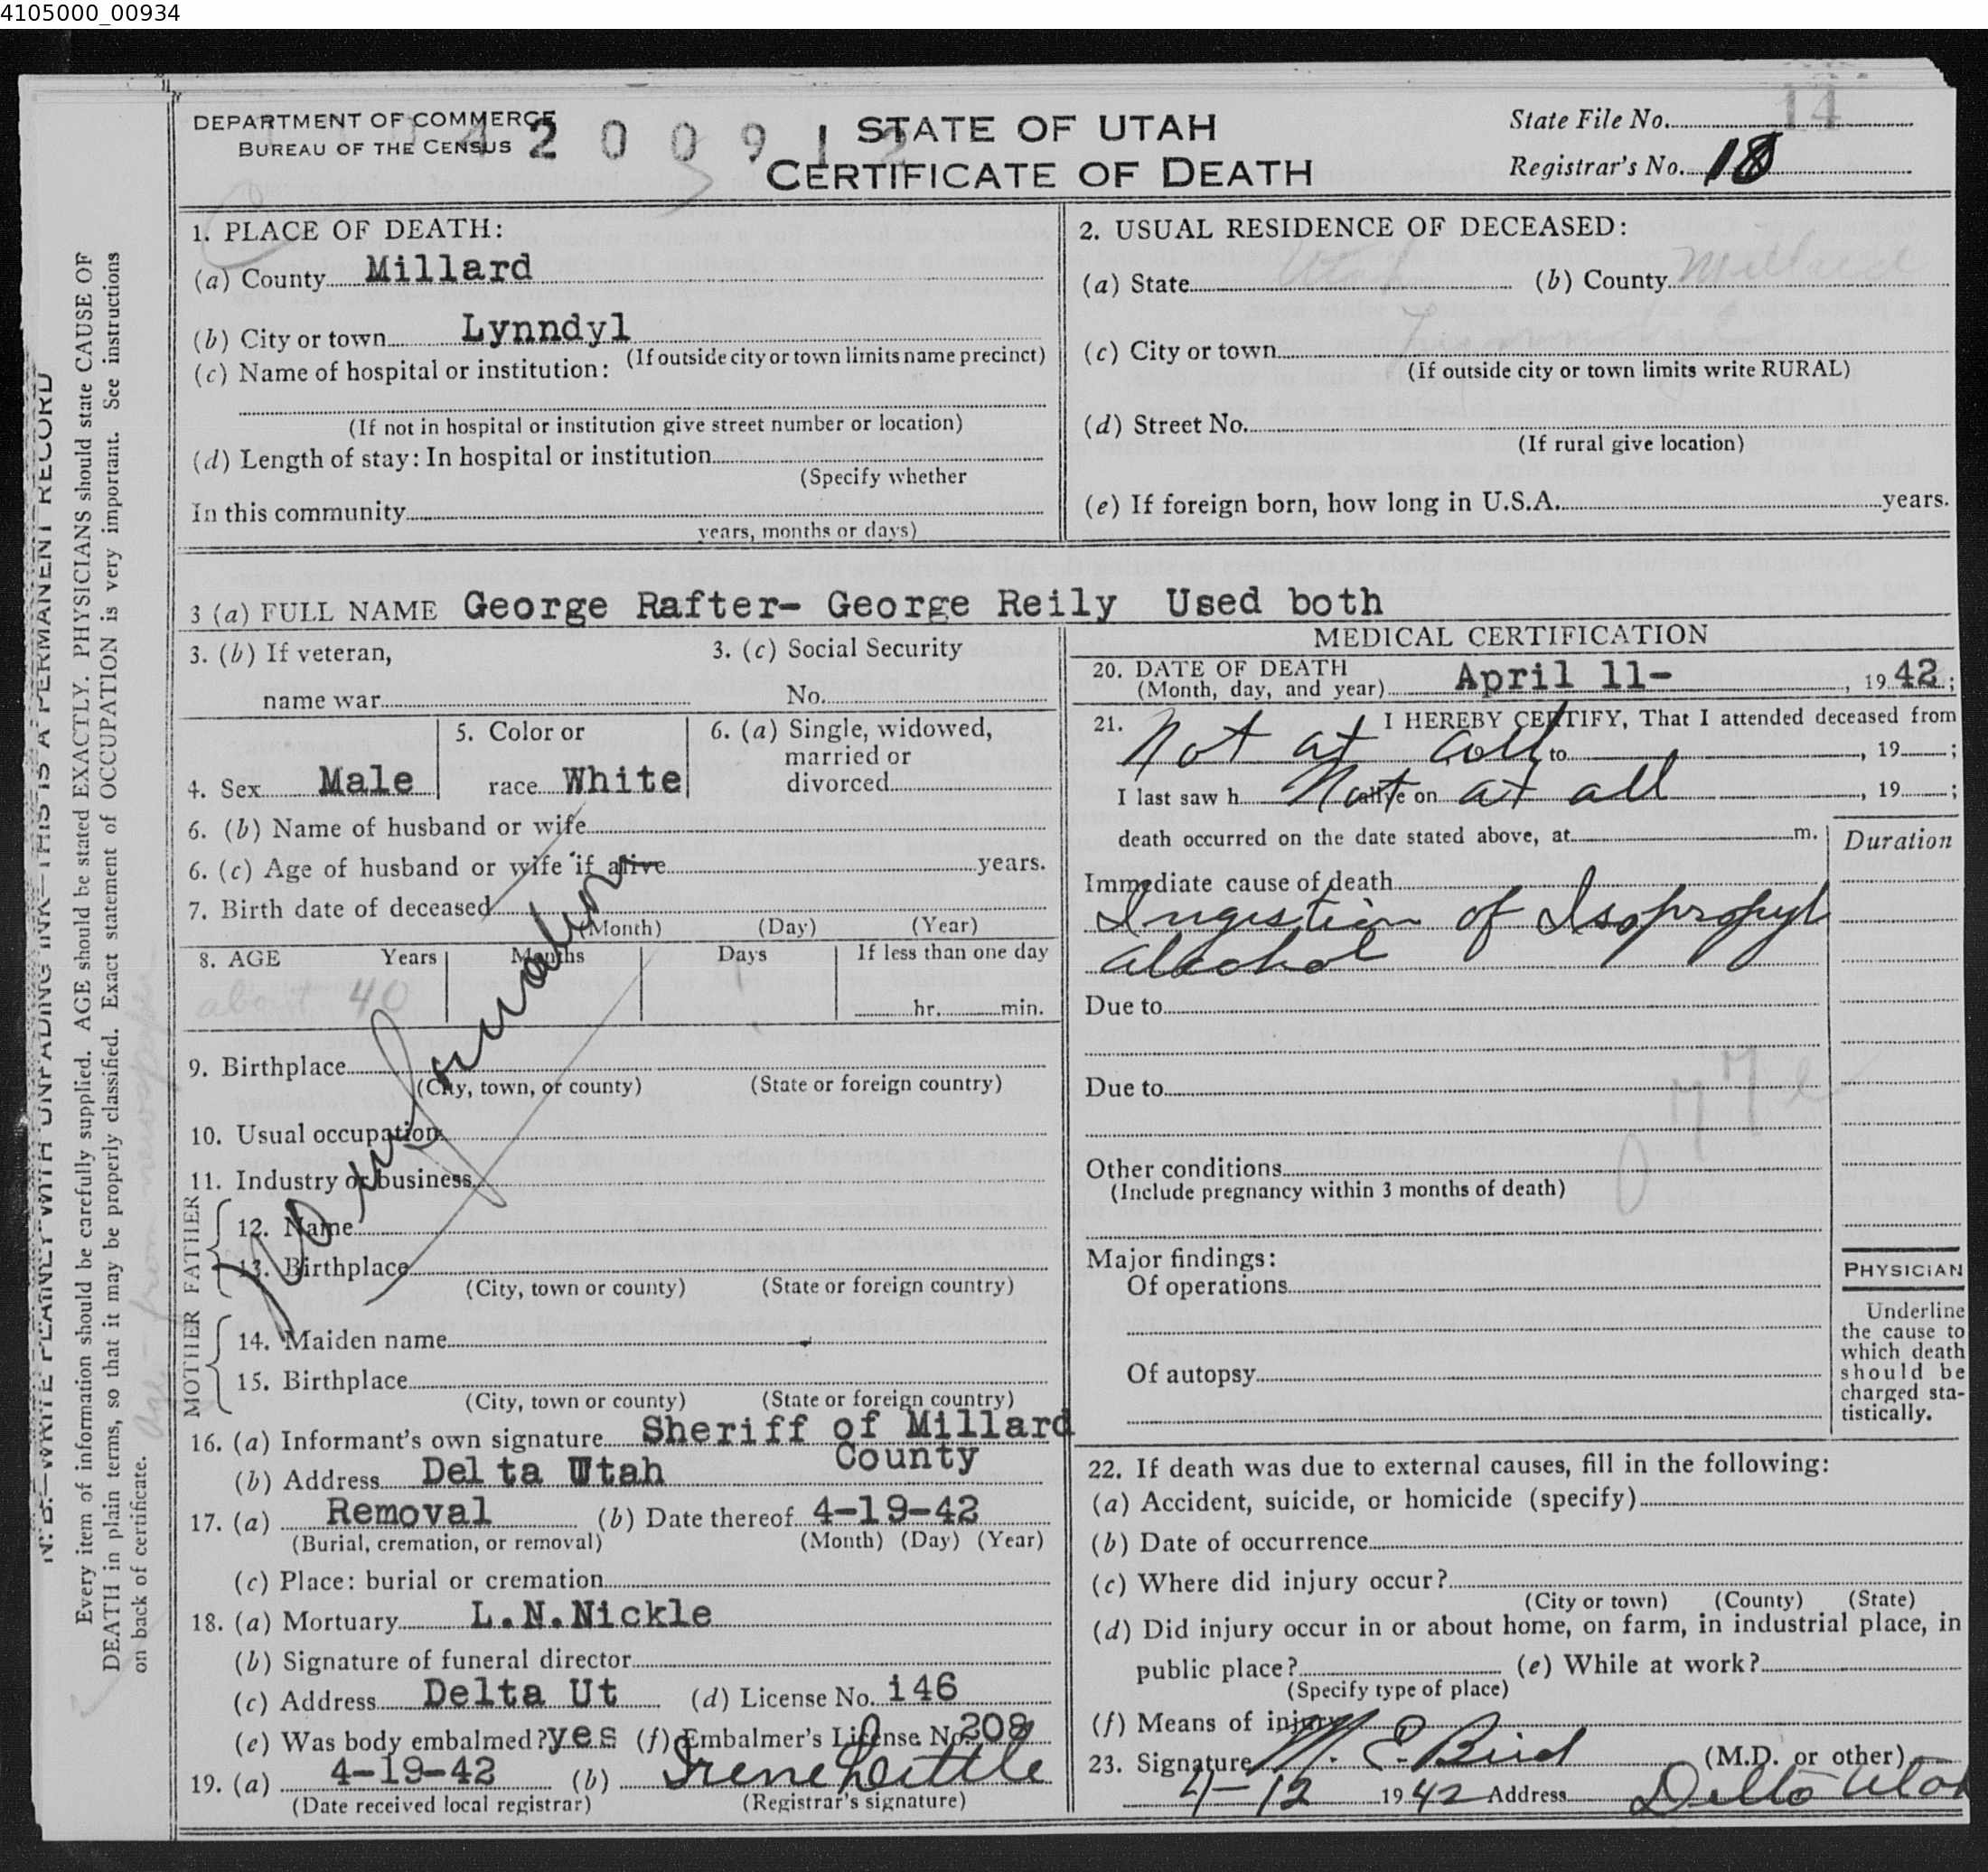 4105000_00934
DEPARTMENT OF COMMERCE
BUREAU OF THE CENSUS
STATE OF UTAH
CERTIFICATE OF DEATH
State File No. 14
Registrar's No. 18
1. PLACE OF DEATH:
(a) County Millard
(b) City or town Lynndyl
(If outside city or town limits name precinct)
(c) Name of hospital or institution:
(If not in hospital or institution give street number or location)
(d) Length of stay: In hospital or institution
(Specify whether
In this community
years, months or days)
2. USUAL RESIDENCE OF DECEASED:
(a) State Utah (b) County Millard
(c) City or town
(If outside city or town limits write RURAL)
(d) Street No.
(If rural give location)
(e) If foreign born, how long in U.S.A. years.
3 (a) FULL NAME George Rafter- George Reily Used both
3. (b) If veteran,
name war
3. (c) Social Security
No.
4. Sex Male
5. Color or
race White
6. (a) Single, widowed,
married or
divorced
6. (b) Name of husband or wife
6. (c) Age of husband or wife if alive years.
7. Birth date of deceased
(Month) (Day) (Year)
8. AGE Years Months Days If less than one day
about 40 hr. min.
9. Birthplace
(City, town, or county) (State or foreign country)
10. Usual occupation
11. Industry or business
No information
FATHER
12. Name
13. Birthplace
(City, town or county) (State or foreign country)
MOTHER
14. Maiden name
15. Birthplace
(City, town or county) (State or foreign country)
16. (a) Informant's own signature Sheriff of Millard
County
(b) Address Delta Utah
17. (a) Removal (b) Date thereof 4-19-42
(Burial, cremation, or removal) (Month) (Day) (Year)
(c) Place: burial or cremation
18. (a) Mortuary L.N.Nickle
(b) Signature of funeral director
(c) Address Delta Ut (d) License No. 146
(e) Was body embalmed? yes (f) Embalmer's License No. 208
19. (a) 4-19-42 (b) Irene Little
(Date received local registrar) (Registrar's signature)
MEDICAL CERTIFICATION
20. DATE OF DEATH
(Month, day, and year) April 11- , 19 42 ;
21. I HEREBY CERTIFY, That I attended deceased from
Not at all to , 19 ;
I last saw h Not alive on at all , 19 ;
death occurred on the date stated above, at m.
Duration
Immediate cause of death
Ingestion of Isopropyl
alcohol
Due to
Due to
Other conditions
(Include pregnancy within 3 months of death)
Major findings:
Of operations
Of autopsy
PHYSICIAN
Underline
the cause to
which death
should be
charged sta-
tistically.
22. If death was due to external causes, fill in the following:
(a) Accident, suicide, or homicide (specify)
(b) Date of occurrence
(c) Where did injury occur?
(City or town) (County) (State)
(d) Did injury occur in or about home, on farm, in industrial place, in
public place? (e) While at work?
(Specify type of place)
(f) Means of injury
23. Signature M. E. Bird (M.D. or other)
4-12 1942 Address Delta Utah
N. B.—WRITE PLAINLY WITH UNFADING INK—THIS IS A PERMANENT RECORD
Every item of information should be carefully supplied. AGE should be stated EXACTLY. PHYSICIANS should state CAUSE OF
DEATH in plain terms, so that it may be properly classified. Exact statement of OCCUPATION is very important. See instructions
on back of certificate.
Age - from newspaper